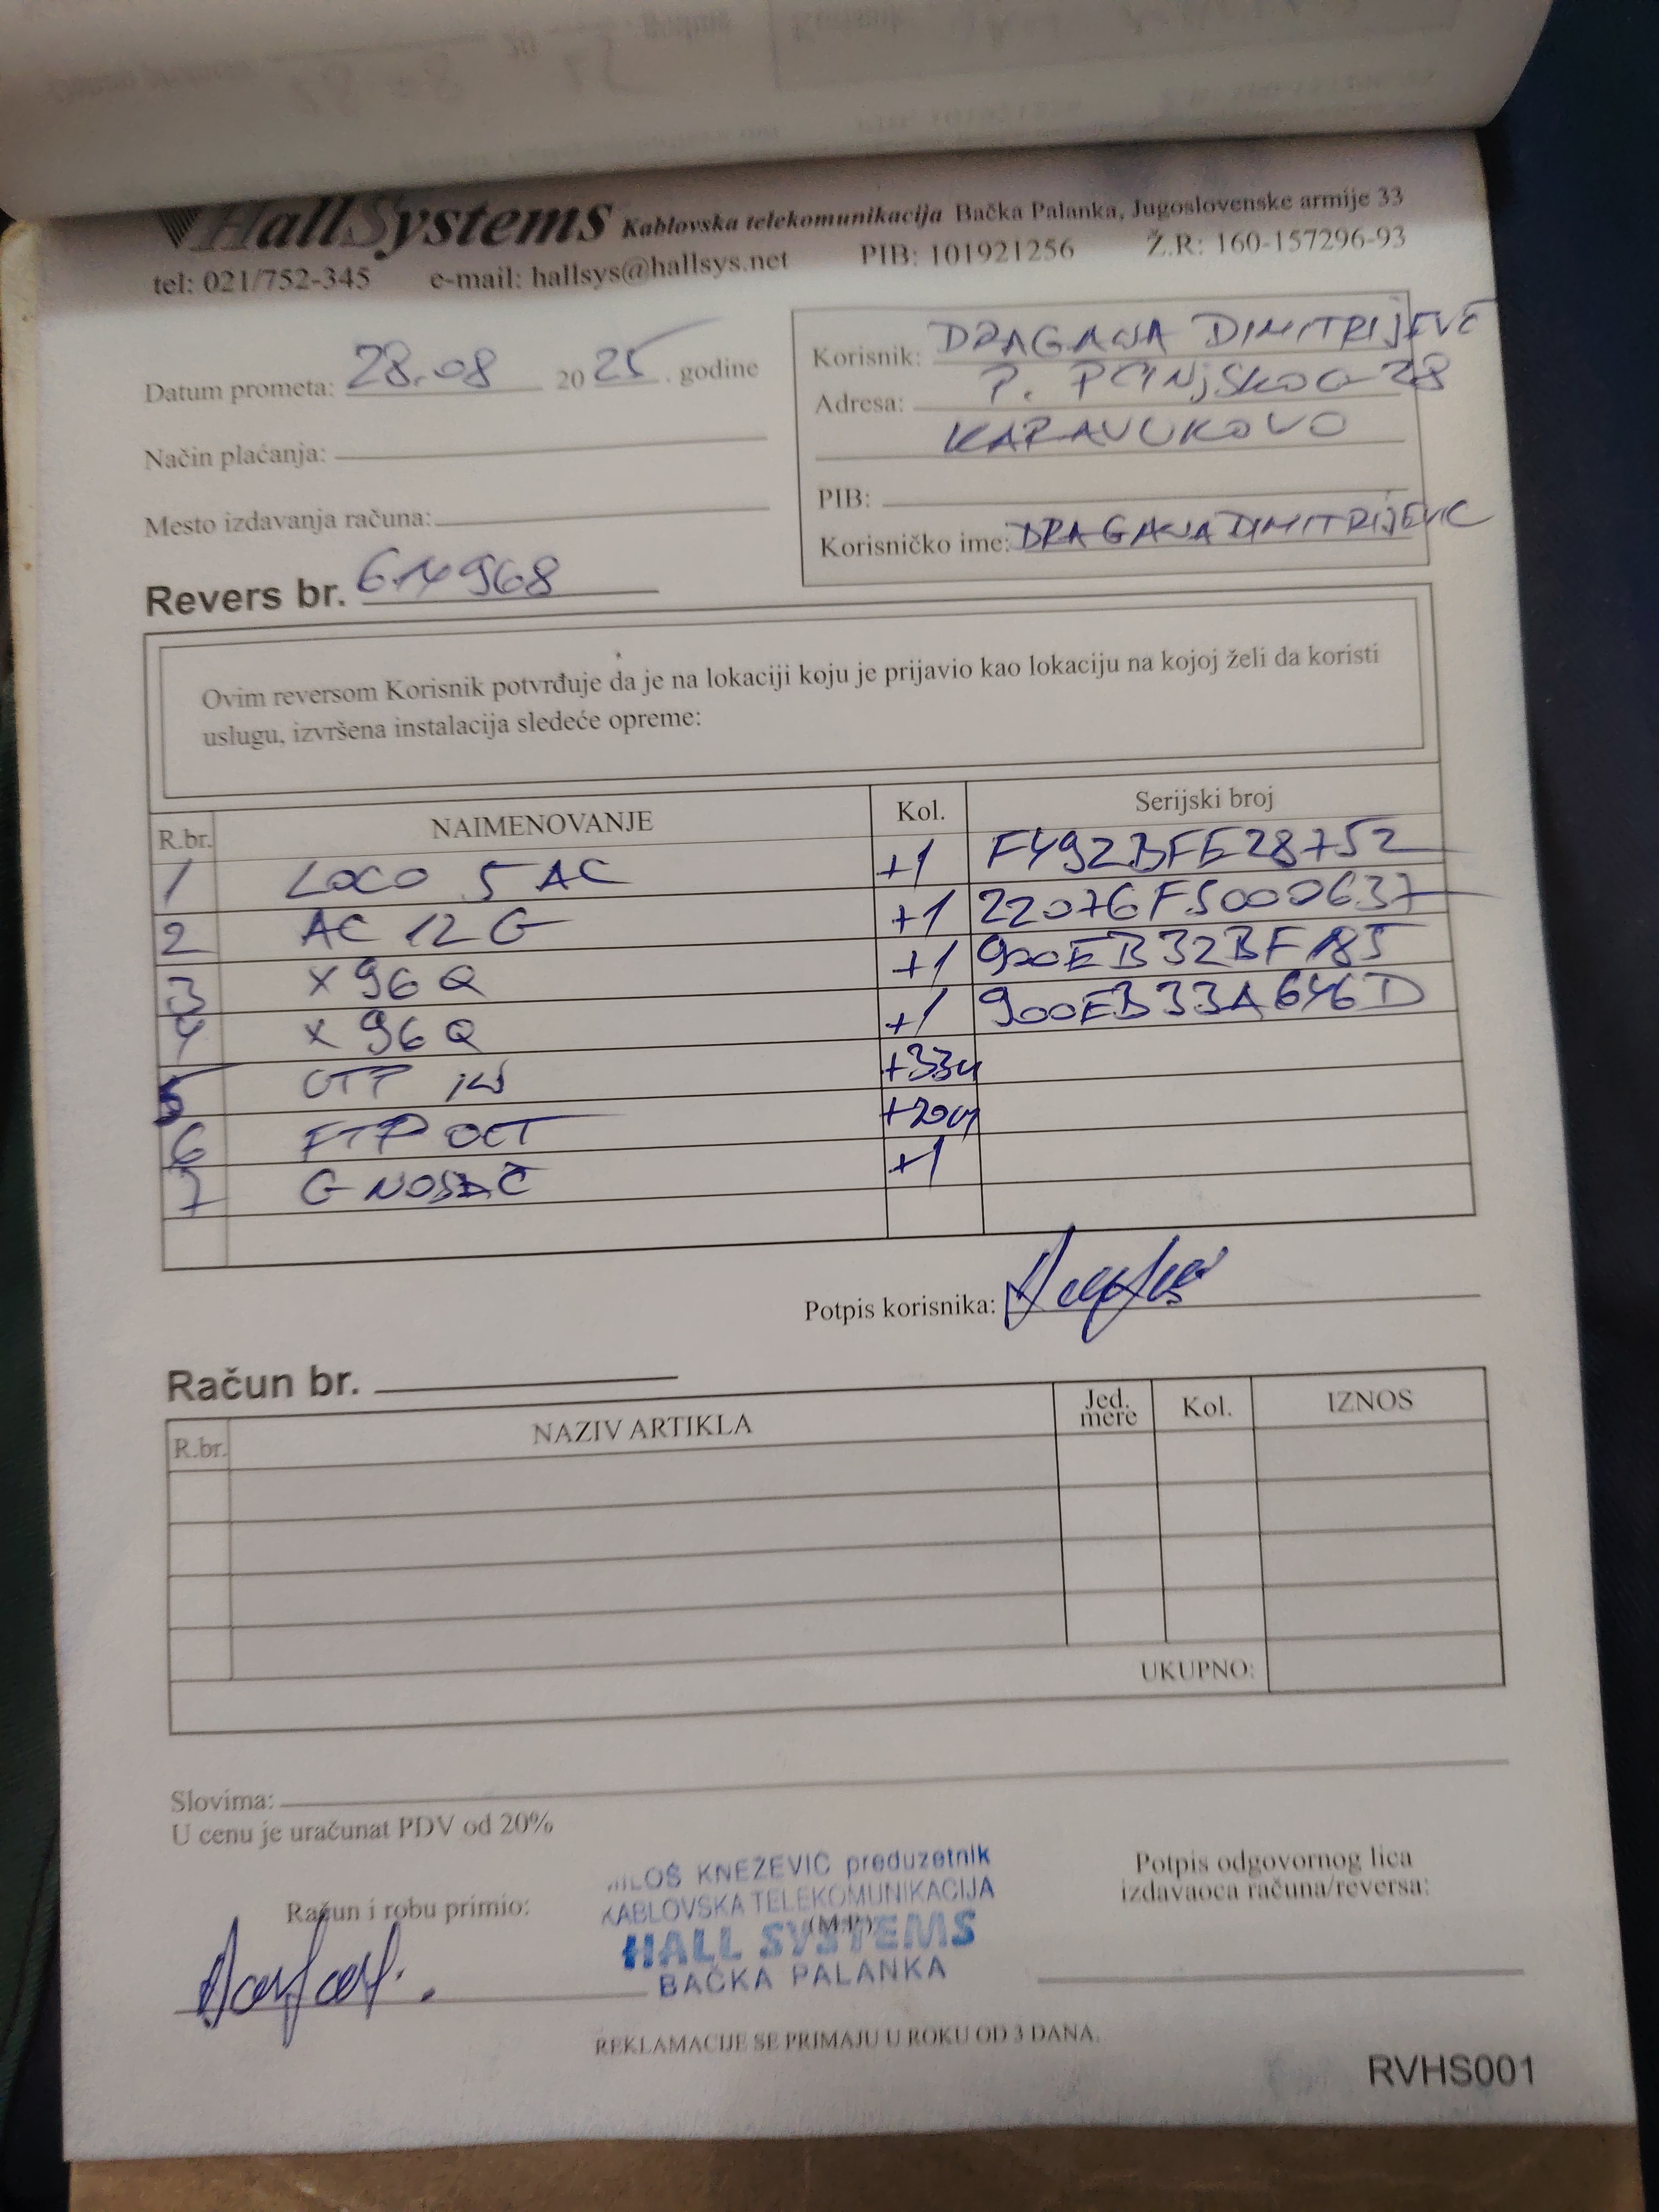 HallSystems Kablovska telekomunikacija Bačka Palanka, Jugoslovenske armije 33
tel: 021/752-345 e-mail: hallsys@hallsys.net PIB: 101921256 Ž.R: 160-157296-93
Datum prometa: 28.08 2025. godine
Način plaćanja:
Mesto izdavanja računa:
Revers br. 614968
Korisnik: DRAGANA DIMITRIJEVĆ
Adresa: P. PČINJSKOG 28
KARAVUKOVO
PIB:
Korisničko ime: DRAGANADIMITRIJEVIC
Ovim reversom Korisnik potvrđuje da je na lokaciji koju je prijavio kao lokaciju na kojoj želi da koristi
uslugu, izvršena instalacija sledeće opreme:
R.br. NAIMENOVANJE Kol. Serijski broj
1 LOCO 5 AC +1 F492BFE28752
2 AC 12 G +1 22076F5000637
3 X 96 Q +1 900EB32BF185
4 X 96 Q +1 900EB33A646D
5 UTP IN +33m
6 FTP OUT +20m
7 G NOSAČ +1
Potpis korisnika:
Račun br.
R.br. NAZIV ARTIKLA Jed. mere Kol. IZNOS
UKUPNO:
Slovima:
U cenu je uračunat PDV od 20%
Račun i robu primio:
MILOŠ KNEŽEVIĆ preduzetnik
KABLOVSKA TELEKOMUNIKACIJA
(M.P.)
HALL SYSTEMS
BAČKA PALANKA
Potpis odgovornog lica
izdavaoca računa/reversa:
REKLAMACIJE SE PRIMAJU U ROKU OD 3 DANA.
RVHS001